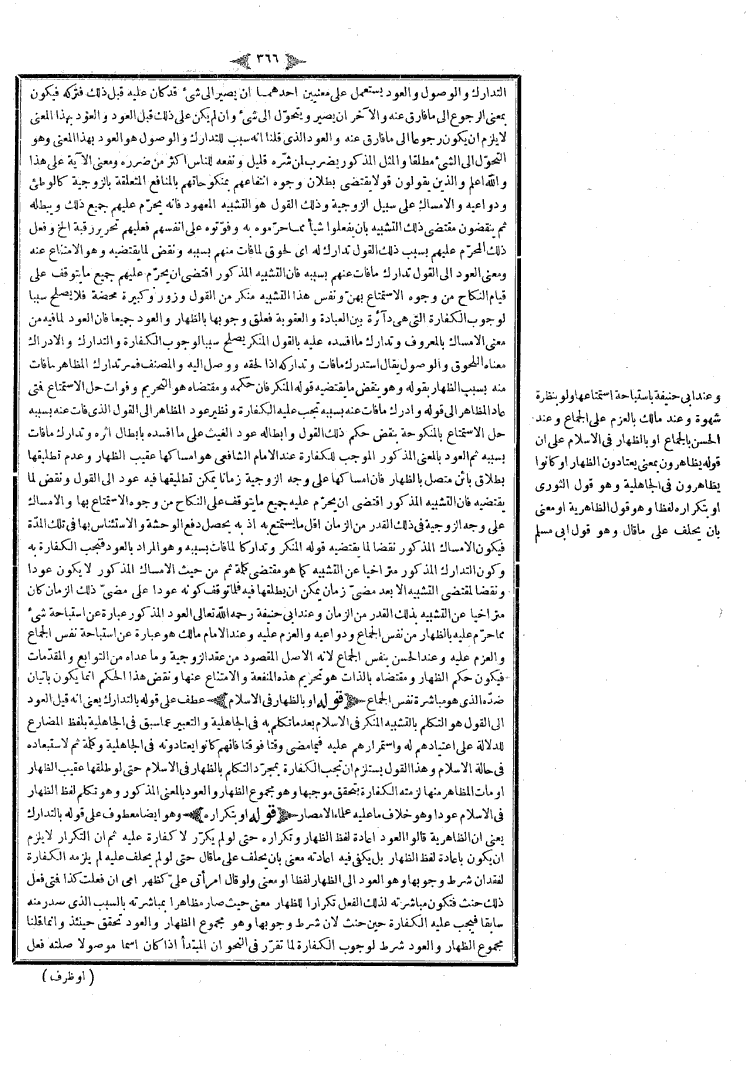 ﴿ ٣٦٦ ﴾
التدارك والوصول والعود يستعمل على معنيين احدهما ان يصير الى شئ قدكان عليه قبل ذلك فتركه فيكون
بمعنى الرجوع الى مافارق عنه والآخر ان يصير ويتحول الى شئ وان لم يكن على ذلك قبل العود والعود بهذا المعنى
لايلزم ان يكون رجوعا الى مافارق عنه والعود الذى قلنا انه سبب للتدارك والوصول هو العود بهذا المعنى وهو
التحول الى الشئ مطلقا والمثل المذكور يضرب لمن شره قليل ونفعه للناس اكثر من ضرره ومعنى الآية على هذا
والله اعلم والذين يقولون قولا يقتضى بطلان وجوه انتفاعهم بمنكوحاتهم بالمنافع المتعلقة بالزوجية كالوطئ
ودواعيه والامساك على سبيل الزوجية وذلك القول هو التشبيه المعهود فانه يحرم عليهم جميع ذلك ويبطله
ثم ينقضون مقتضى ذلك التشبيه بان يفعلوا شيأ مما حرموه به وفوتوه على انفسهم فعليهم تحرير رقبة الخ وفعل
ذلك المحرم عليهم بسبب ذلك القول تدارك له اى لحوق لمافات منهم بسببه ونقض لما يقتضيه وهو الامتناع عنه
ومعنى العود الى القول تدارك مافات عنهم بسببه فان التشبيه المذكور اقتضى ان يحرم عليهم جميع مايتوقف على
قيام النكاح من وجوه الاستمتاع بهن ونفس هذا التشبيه منكر من القول وزور وكبيرة محضة فلا يصلح سببا
لوجوب الكفارة التى هى دآئرة بين العبادة والعقوبة فعلق وجوبها بالظهار والعود جميعا فان العود لما فيه من
معنى الامساك بالمعروف وتدارك ما افسده عليه بالقول المنكر يصلح سببا لوجوب الكفارة والتدارك والادراك
معناه اللحوق والوصول يقال استدرك مافات وتداركه اذا لحقه ووصل اليه والمصنف فسر تدارك المظاهر مافات
منه بسبب الظهار بقوله وهو ينقض مايقتضيه قوله المنكر فان حكمه ومقتضاه هو التحريم وفوات حل الاستمتاع فتى
عاد المظاهر الى قوله وادرك مافات عنه بسببه تجب عليه الكفارة ونظير عود المظاهر الى القول الذى فات عنه بسببه
حل الاستمتاع بالمنكوحة بنقض حكم ذلك القول وابطاله عود الغيث على ما افسده بابطال اثره وتدارك مافات
بسببه ثم العود بالمعنى المذكور الموجب للكفارة عند الامام الشافعى هو امساكها عقيب الظهار وعدم تطليقها
بطلاق بائن متصل بالظهار فان امساكها على وجه الزوجية زمانا يمكن تطليقها فيه عود الى القول ونقض لما
يقتضيه فان التشبيه المذكور اقتضى ان يحرم عليه جميع مايتوقف على النكاح من وجوه الاستمتاع بها والامساك
على وجه الزوجية فى ذلك القدر من الزمان اقل مايستمتع به اذ به يحصل دفع الوحشة والاستئناس بها فى تلك المدة
فيكون الامساك المذكور نقضا لما يقتضيه قوله المنكر وتداركا لمافات بسببه وهو المراد بالعود فتجب الكفارة به
وكون التدارك المذكور متراخيا عن التشبيه كما هو مقتضى كلمة ثم من حيث الامساك المذكور لا يكون عودا
ونقضا لمقتضى التشبيه الا بعد مضى زمان يمكن ان يطلقها فيه فلما توقف كونه عودا على مضى ذلك الزمان كان
متراخيا عن التشبيه بذلك القدر من الزمان وعند ابى حنيفة رحمه الله تعالى العود المذكور عبارة عن استباحة شئ
مما حرم عليه بالظهار من نفس الجماع ودواعيه والعزم عليه وعند الامام مالك هو عبارة عن استباحة نفس الجماع
والعزم عليه وعند الحسن بنفس الجماع لانه الاصل المقصود من عقد الزوجية وما عداه من التوابع والمقدمات
فيكون حكم الظهار ومقتضاه بالذات هو تحريم هذه المنفعة والامتناع عنها ونقض هذا الحكم انما يكون باتيان
ضده الذى هو مباشرة نفس الجماع ﴿ قوله او بالظهار فى الاسلام ﴾ عطف على قوله بالتدارك يعنى انه قيل العود
الى القول هو التكلم بالتشبيه المنكر فى الاسلام بعد ماتكلم به فى الجاهلية والتعبير عما سبق فى الجاهلية بلفظ المضارع
للدلالة على اعتيادهم له واستمرارهم عليه فيما مضى وقتا فوقتا فانهم كانوا يعتادونه فى الجاهلية وكلمة ثم لاستبعاده
فى حالة الاسلام وهذا القول يستلزم ان تجب الكفارة بمجرد التكلم بالظهار فى الاسلام حتى لو طلقها عقيب الظهار
او مات المظاهر منها لزمته الكفارة بتحقق موجبها وهو مجموع الظهار والعود بالمعنى المذكور وهو تكلم لفظ الظهار
فى الاسلام عودا وهو خلاف ما عليه علماء الامصار ﴿ قوله او بتكراره ﴾ وهو ايضا معطوف على قوله بالتدارك
يعنى ان الظاهرية قالوا العود اعادة لفظ الظهار وتكراره حتى لو لم يكرر لا كفارة عليه ثم ان التكرار لايلزم
ان يكون باعادة لفظ الظهار بل يكفى فيه اعادته معنى بان يحلف على ماقال حتى لو لم يحلف عليه لم يلزمه الكفارة
لفقدان شرط وجوبها وهو العود الى الظهار لفظا او معنى ولو قال امرأتى على كظهر امى ان فعلت كذا فتى فعل
ذلك حنث فتكون مباشرته لذلك الفعل تكرارا للظهار معنى حيث صار مظاهرا بمباشرته بالسبب الذى صدر منه
سابقا فيجب عليه الكفارة حين حنث لان شرط وجوبها وهو مجموع الظهار والعود تحقق حينئذ وانما قلنا
مجموع الظهار والعود شرط لوجوب الكفارة لما تقرر فى النحو ان المبتدأ اذا كان اسما موصولا صلته فعل
( او ظرف )
وعند ابى حنيفة باستباحة استمتاعها ولو بنظرة
شهوة وعند مالك بالعزم على الجماع وعند
الحسن بالجماع او بالظهار فى الاسلام على ان
قوله يظاهرون بمعنى يعتادون الظهار او كانوا
يظاهرون فى الجاهلية وهو قول الثورى
او بتكراره لفظا وهو قول الظاهرية او معنى
بان يحلف على ماقال وهو قول ابى مسلم